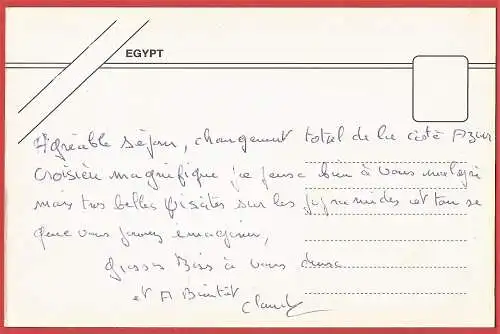 EGYPT
Agréable séjour, changement total de la côte Azur
croisière magnifique je pense bien à vous malgré
mais très belles visites sur les pyramides et tou se
que vous pouvez imaginer,
grosses Bises à vous deux
et A Bientôt
Claude